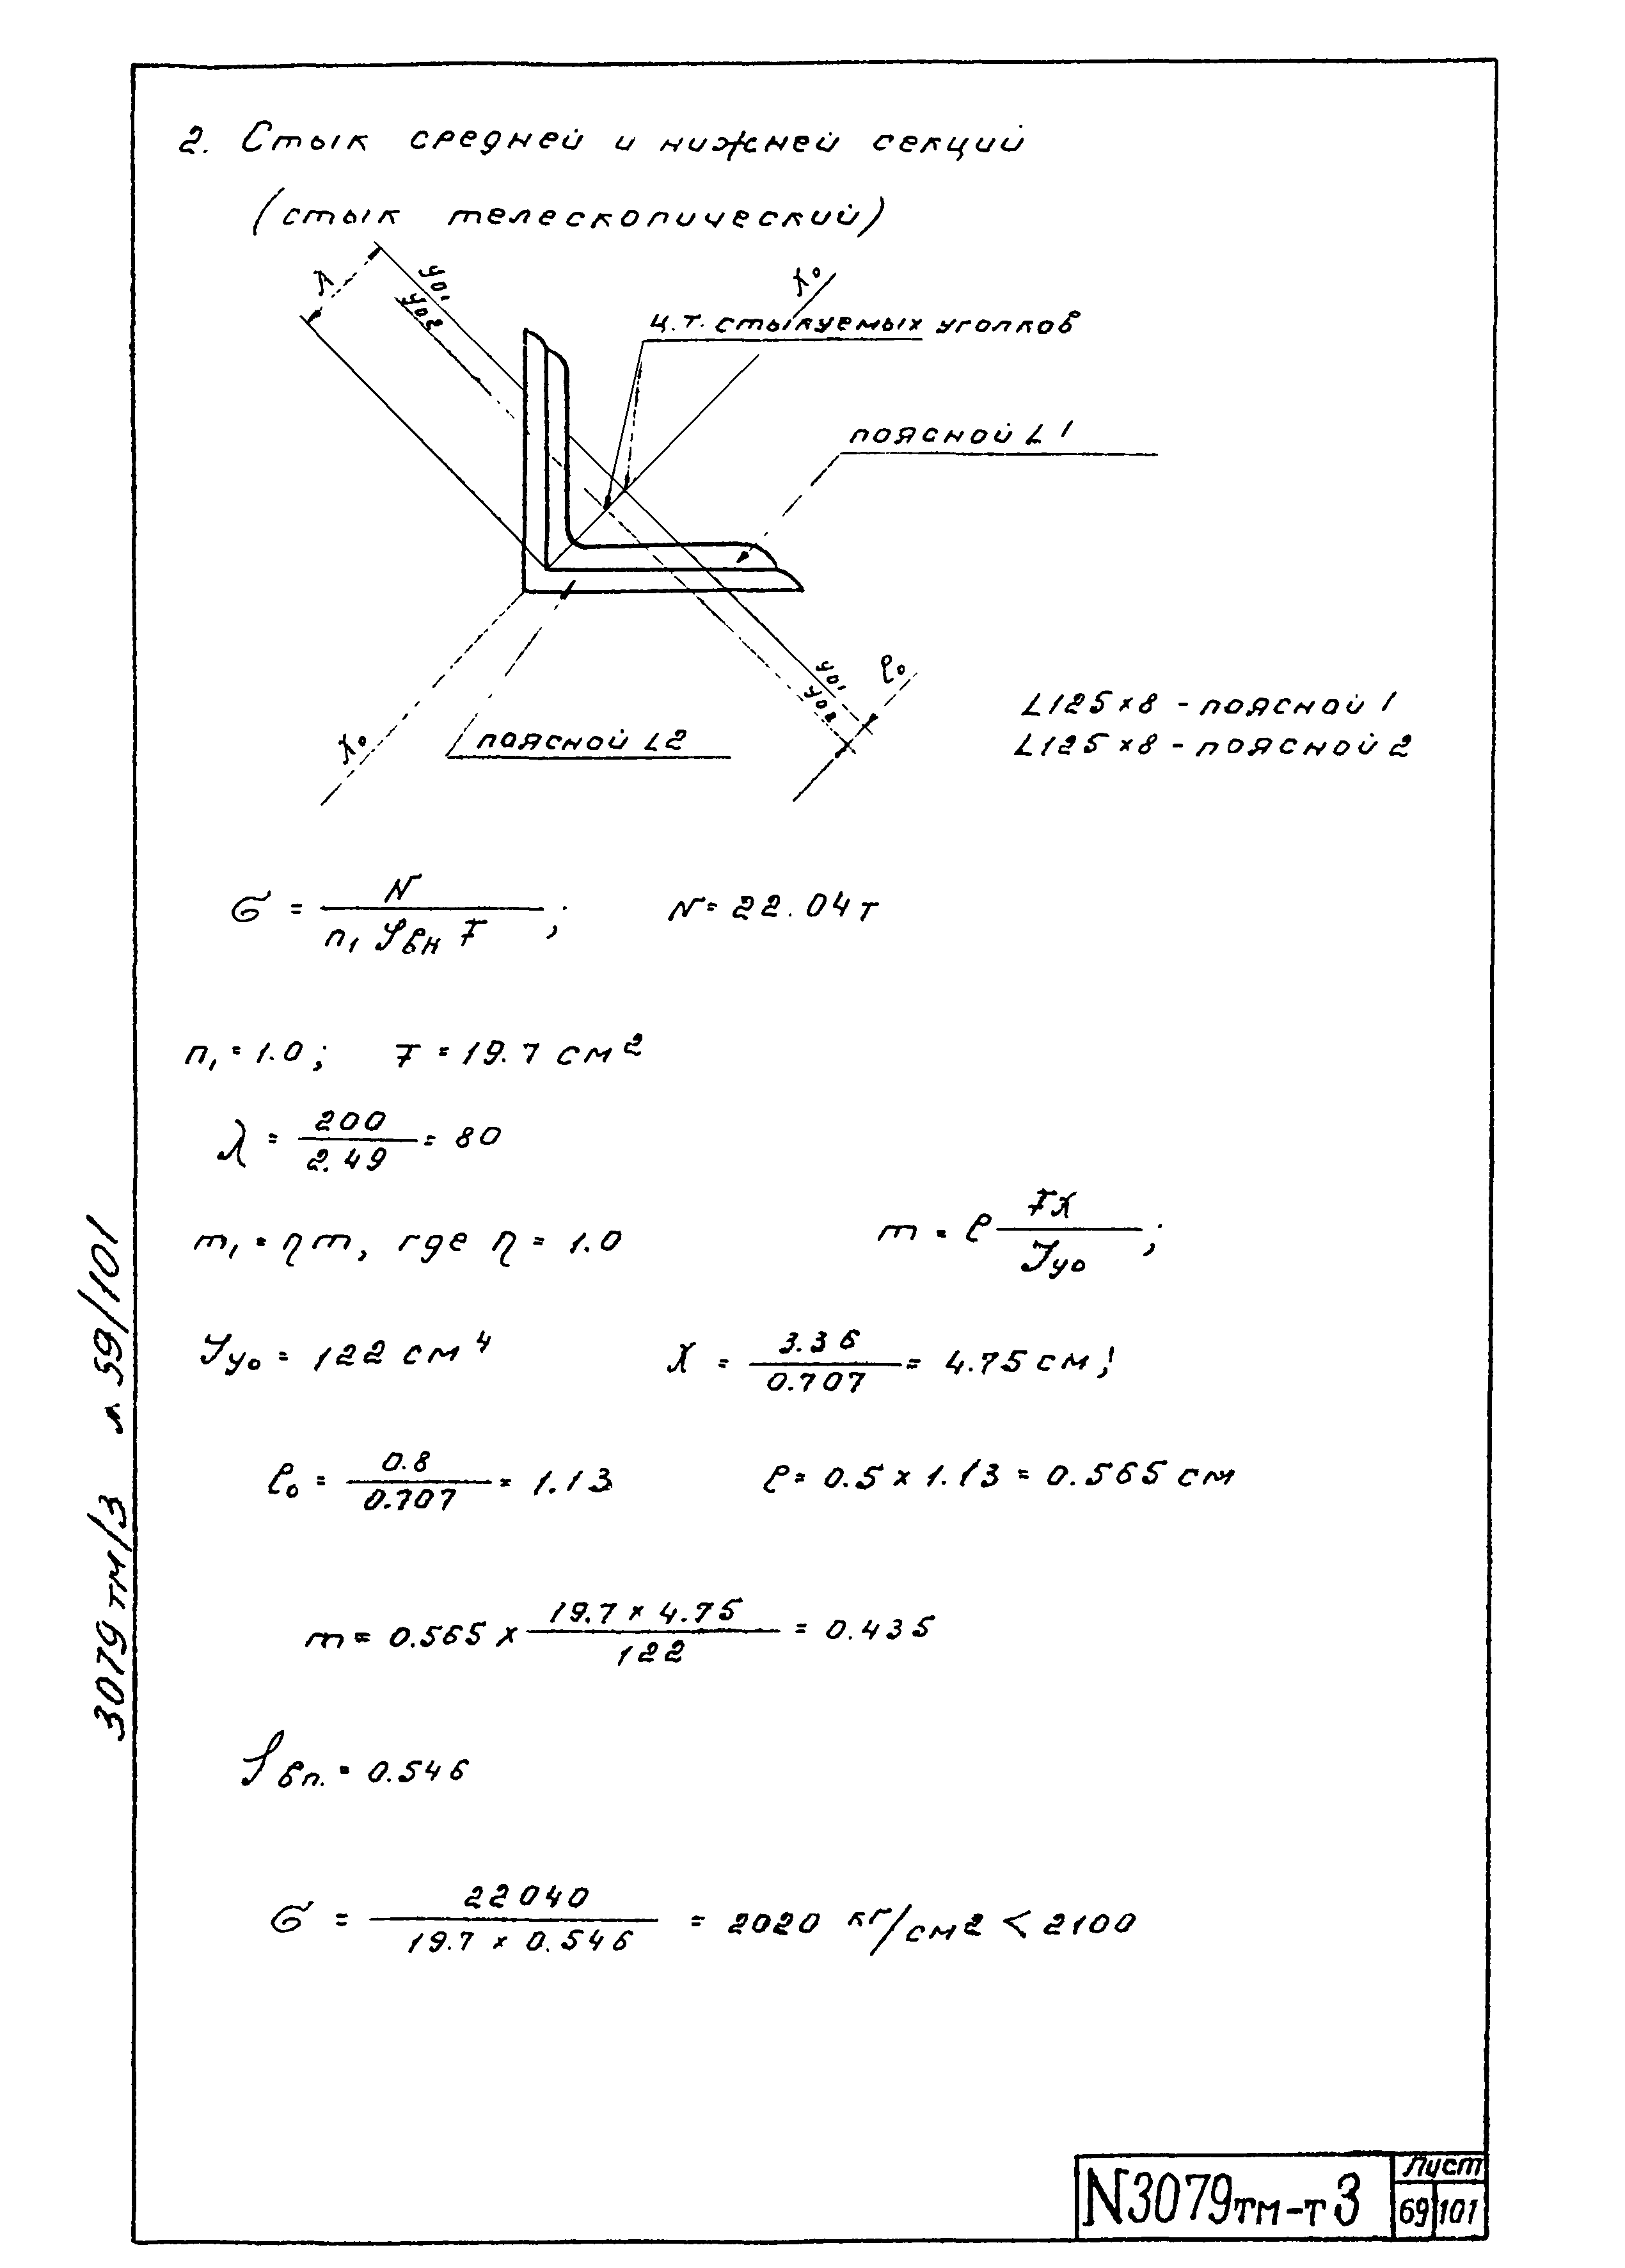 2. Стык средней и нижней секций
(стык телескопический)
X
yo1
yo2
Xo
ц.т. стыкуемых уголков
поясной L 1
yo1
yo2
eo
Xo
поясной L2
L125×8 - поясной 1
L125×8 - поясной 2
σ = N / n1 φвн F ; N = 22.04т
n1 = 1.0; F = 19.7 см2
λ = 200 / 2.49 = 80
m1 = ηm, где η = 1.0 m = e FX / Jyo ;
Jyo = 122 см4 X = 3.36 / 0.707 = 4.75 см;
eo = 0.8 / 0.707 = 1.13 e = 0.5 × 1.13 = 0.565 см
m = 0.565 × 19.7 × 4.75 / 122 = 0.435
φвп. = 0.546
σ = 22040 / 19.7 × 0.546 = 2020 кг/см2 < 2100
3079тм/3 л 59/101
N3079тм-т3
Лист
69 101